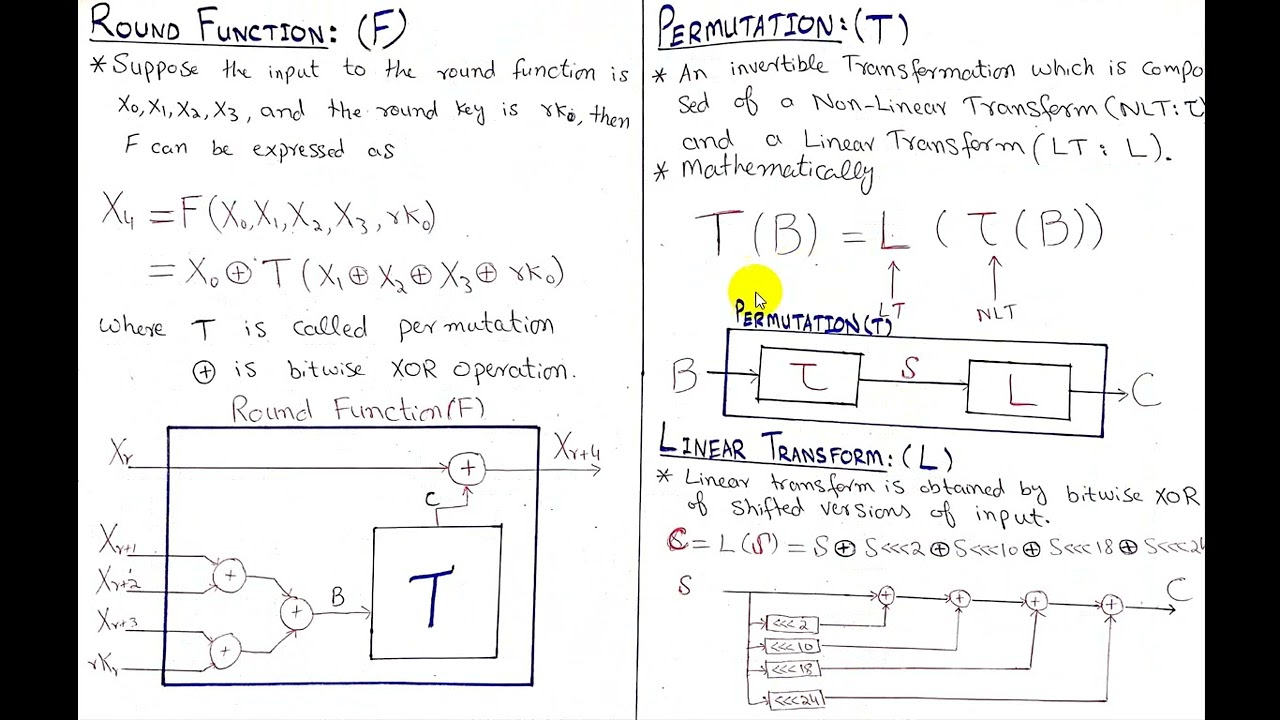 ROUND FUNCTION: (F)
* Suppose the input to the round function is
X₀, X₁, X₂, X₃, and the round key is rK₀, then
F can be expressed as
X₄ = F(X₀, X₁, X₂, X₃, rK₀)
= X₀ ⊕ T (X₁ ⊕ X₂ ⊕ X₃ ⊕ rK₀)
where T is called permutation
⊕ is bitwise XOR operation.
Round Function(F)
Xᵣ
Xᵣ₊₄
+
C
Xᵣ₊₁
Xᵣ₊₂
+
B
T
+
Xᵣ₊₃
+
rKᵣ
PERMUTATION: (T)
* An invertible Transformation which is compo
sed of a Non-Linear Transform (NLT: τ
and a Linear Transform (LT : L).
* Mathematically
T (B) = L ( τ (B))
LT
NLT
PERMUTATION(T)
B
τ
S
L
C
LINEAR TRANSFORM: (L)
* Linear transform is obtained by bitwise XOR
of shifted versions of input.
C = L (S) = S ⊕ S<<<2 ⊕ S<<<10 ⊕ S<<<18 ⊕ S<<<24
S
+
+
+
+
C
<<<2
<<<10
<<<18
<<<24